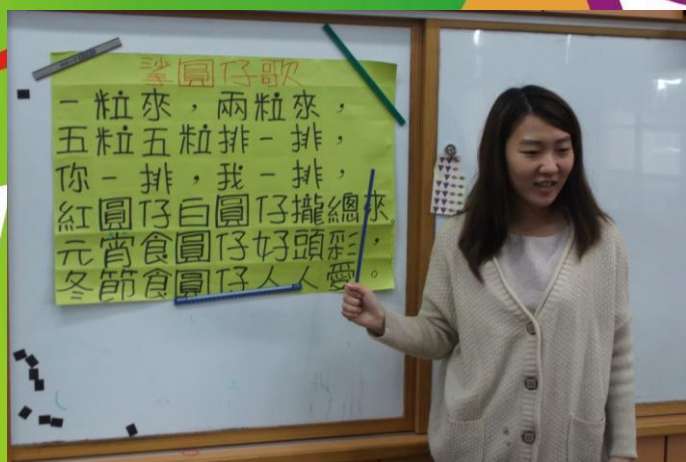 挲圓仔歌
一粒來，兩粒來，
五粒五粒排一排，
你一排，我一排，
紅圓仔白圓仔攏總來
元宵食圓仔好頭彩，
冬節食圓仔人人愛。